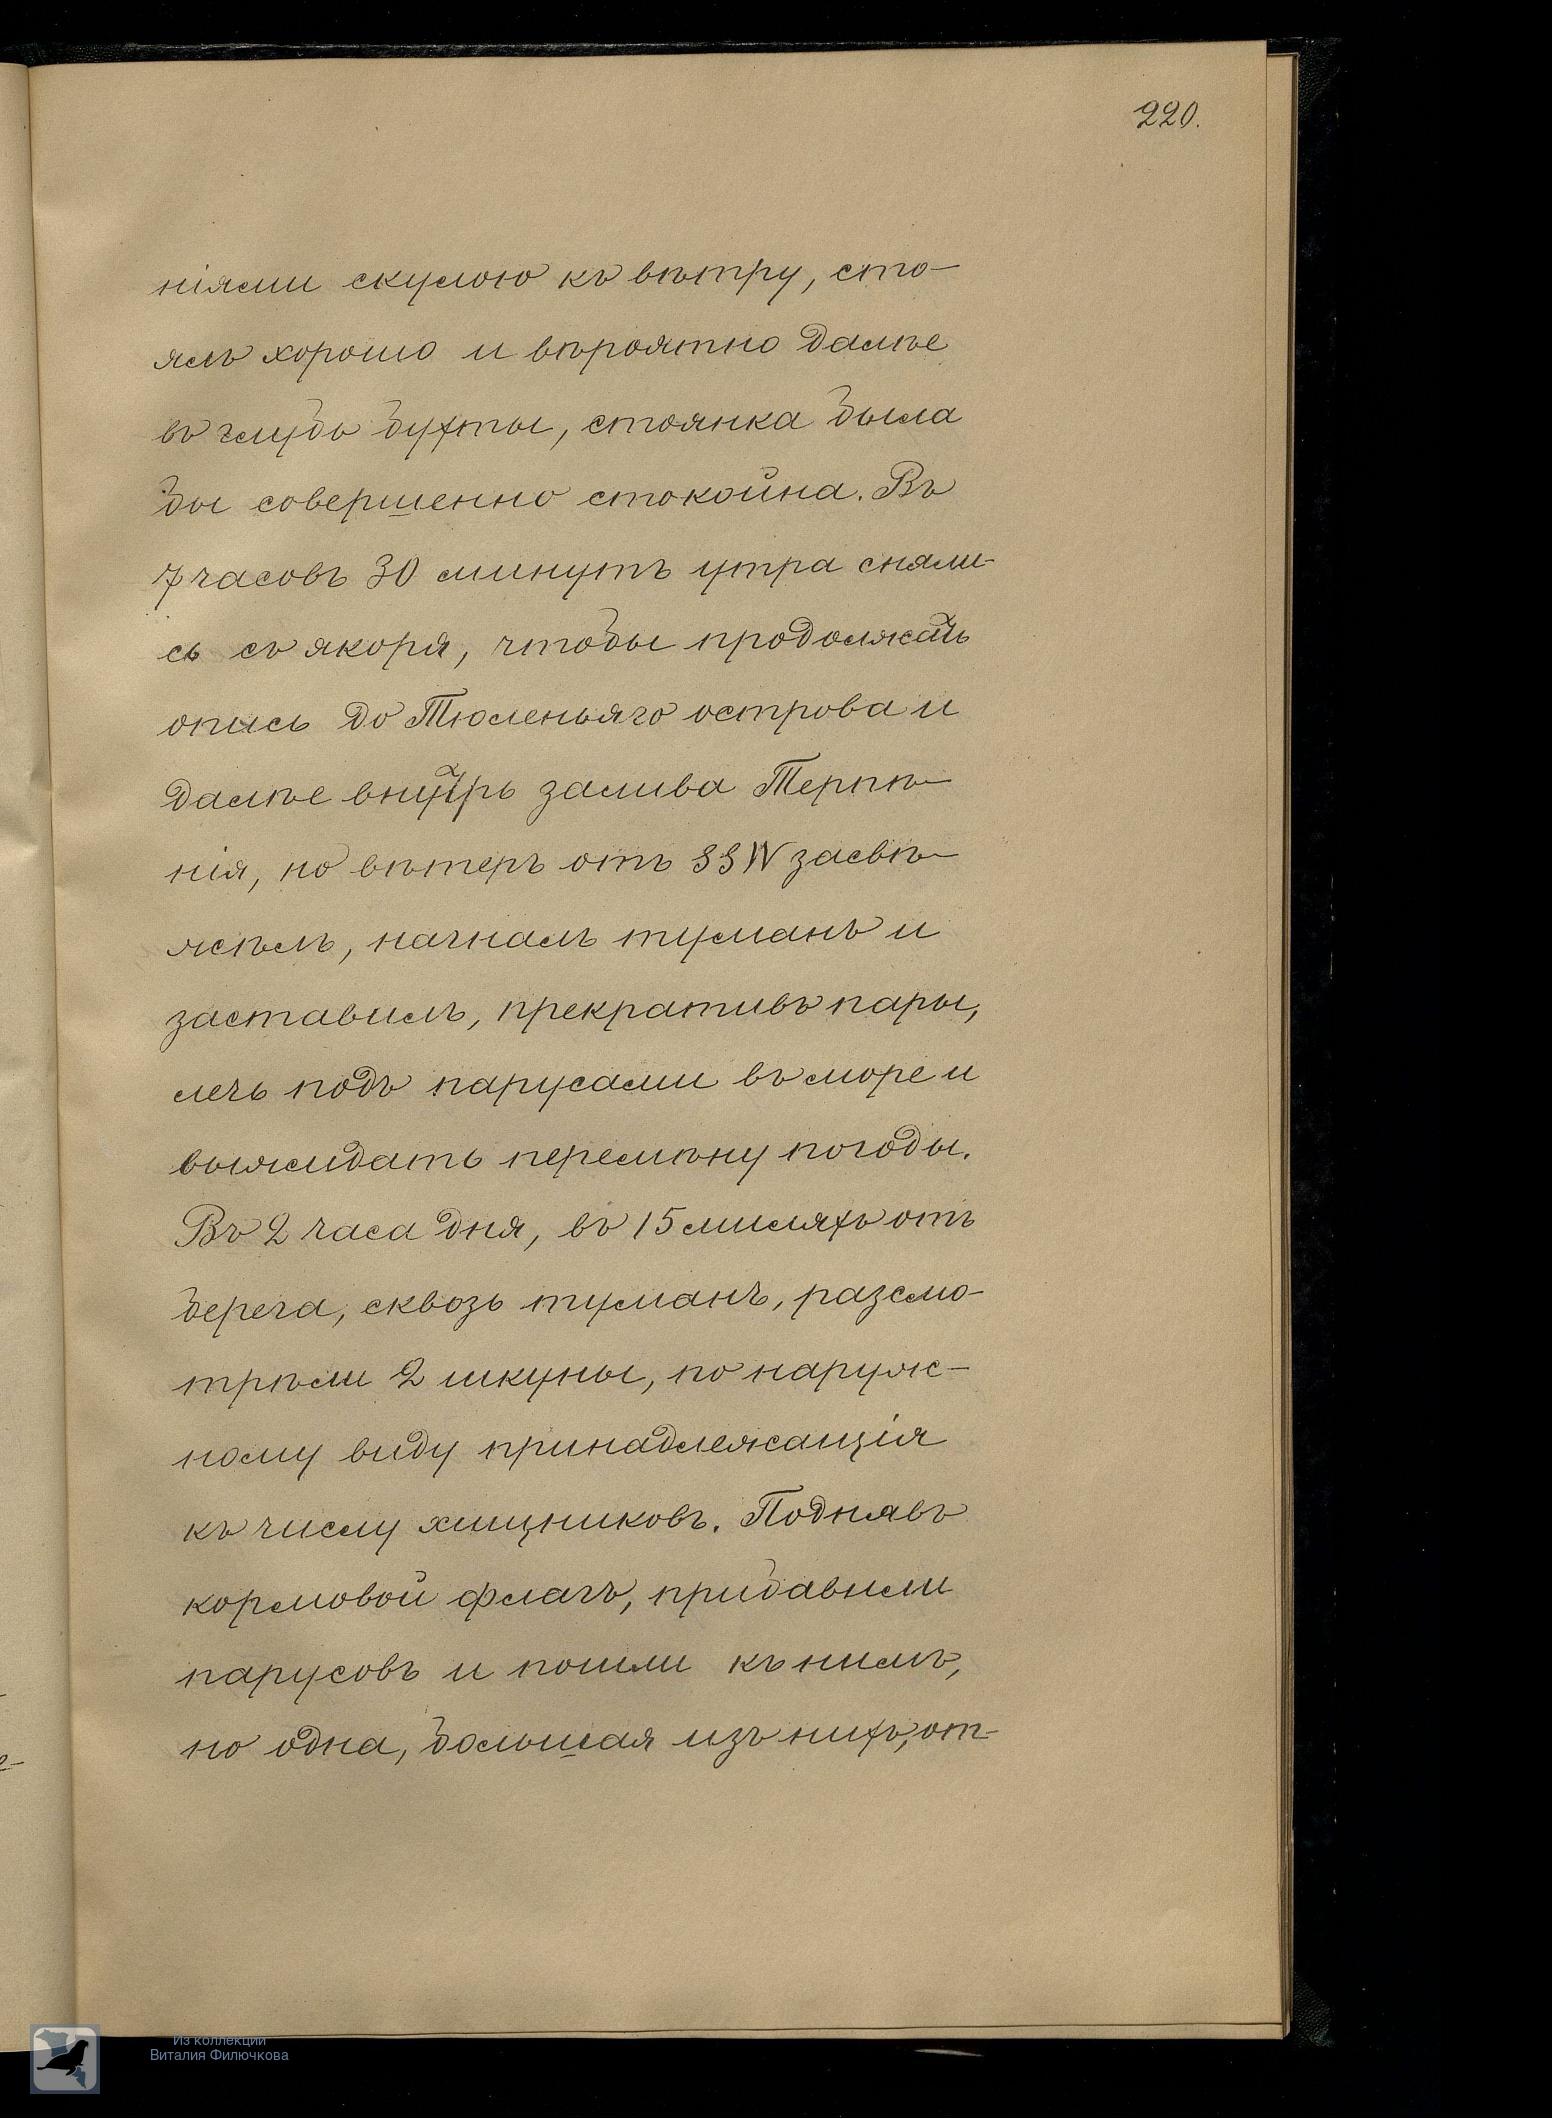 220.
ніями скулою къ вѣтру, сто-
ялъ хорошо и вѣроятно далѣе
въ глубь бухты, стоянка была
бы совершенно спокойна. Въ
7 часовъ 30 минутъ утра сняли-
сь съ якоря, чтобы продолжать
опись до Тюленьяго острова и
далѣе внутрь залива Терпѣ-
нія, но вѣтеръ отъ SSW засвѣ-
жѣлъ, нагналъ туманъ и
заставилъ, прекративъ пары,
лечь подъ парусами въ море и
выжидать перемѣну погоды.
Въ 2 часа дня, въ 15 миляхъ отъ
берега, сквозь туманъ, разсмо-
трѣли 2 шкуны, по наруж-
ному виду принадлежащія
къ числу хищниковъ. Поднявъ
кормовой флагъ, прибавили
парусовъ и пошли къ нимъ,
но одна, большая изъ нихъ, от-
Из коллекции
Виталия Филючкова